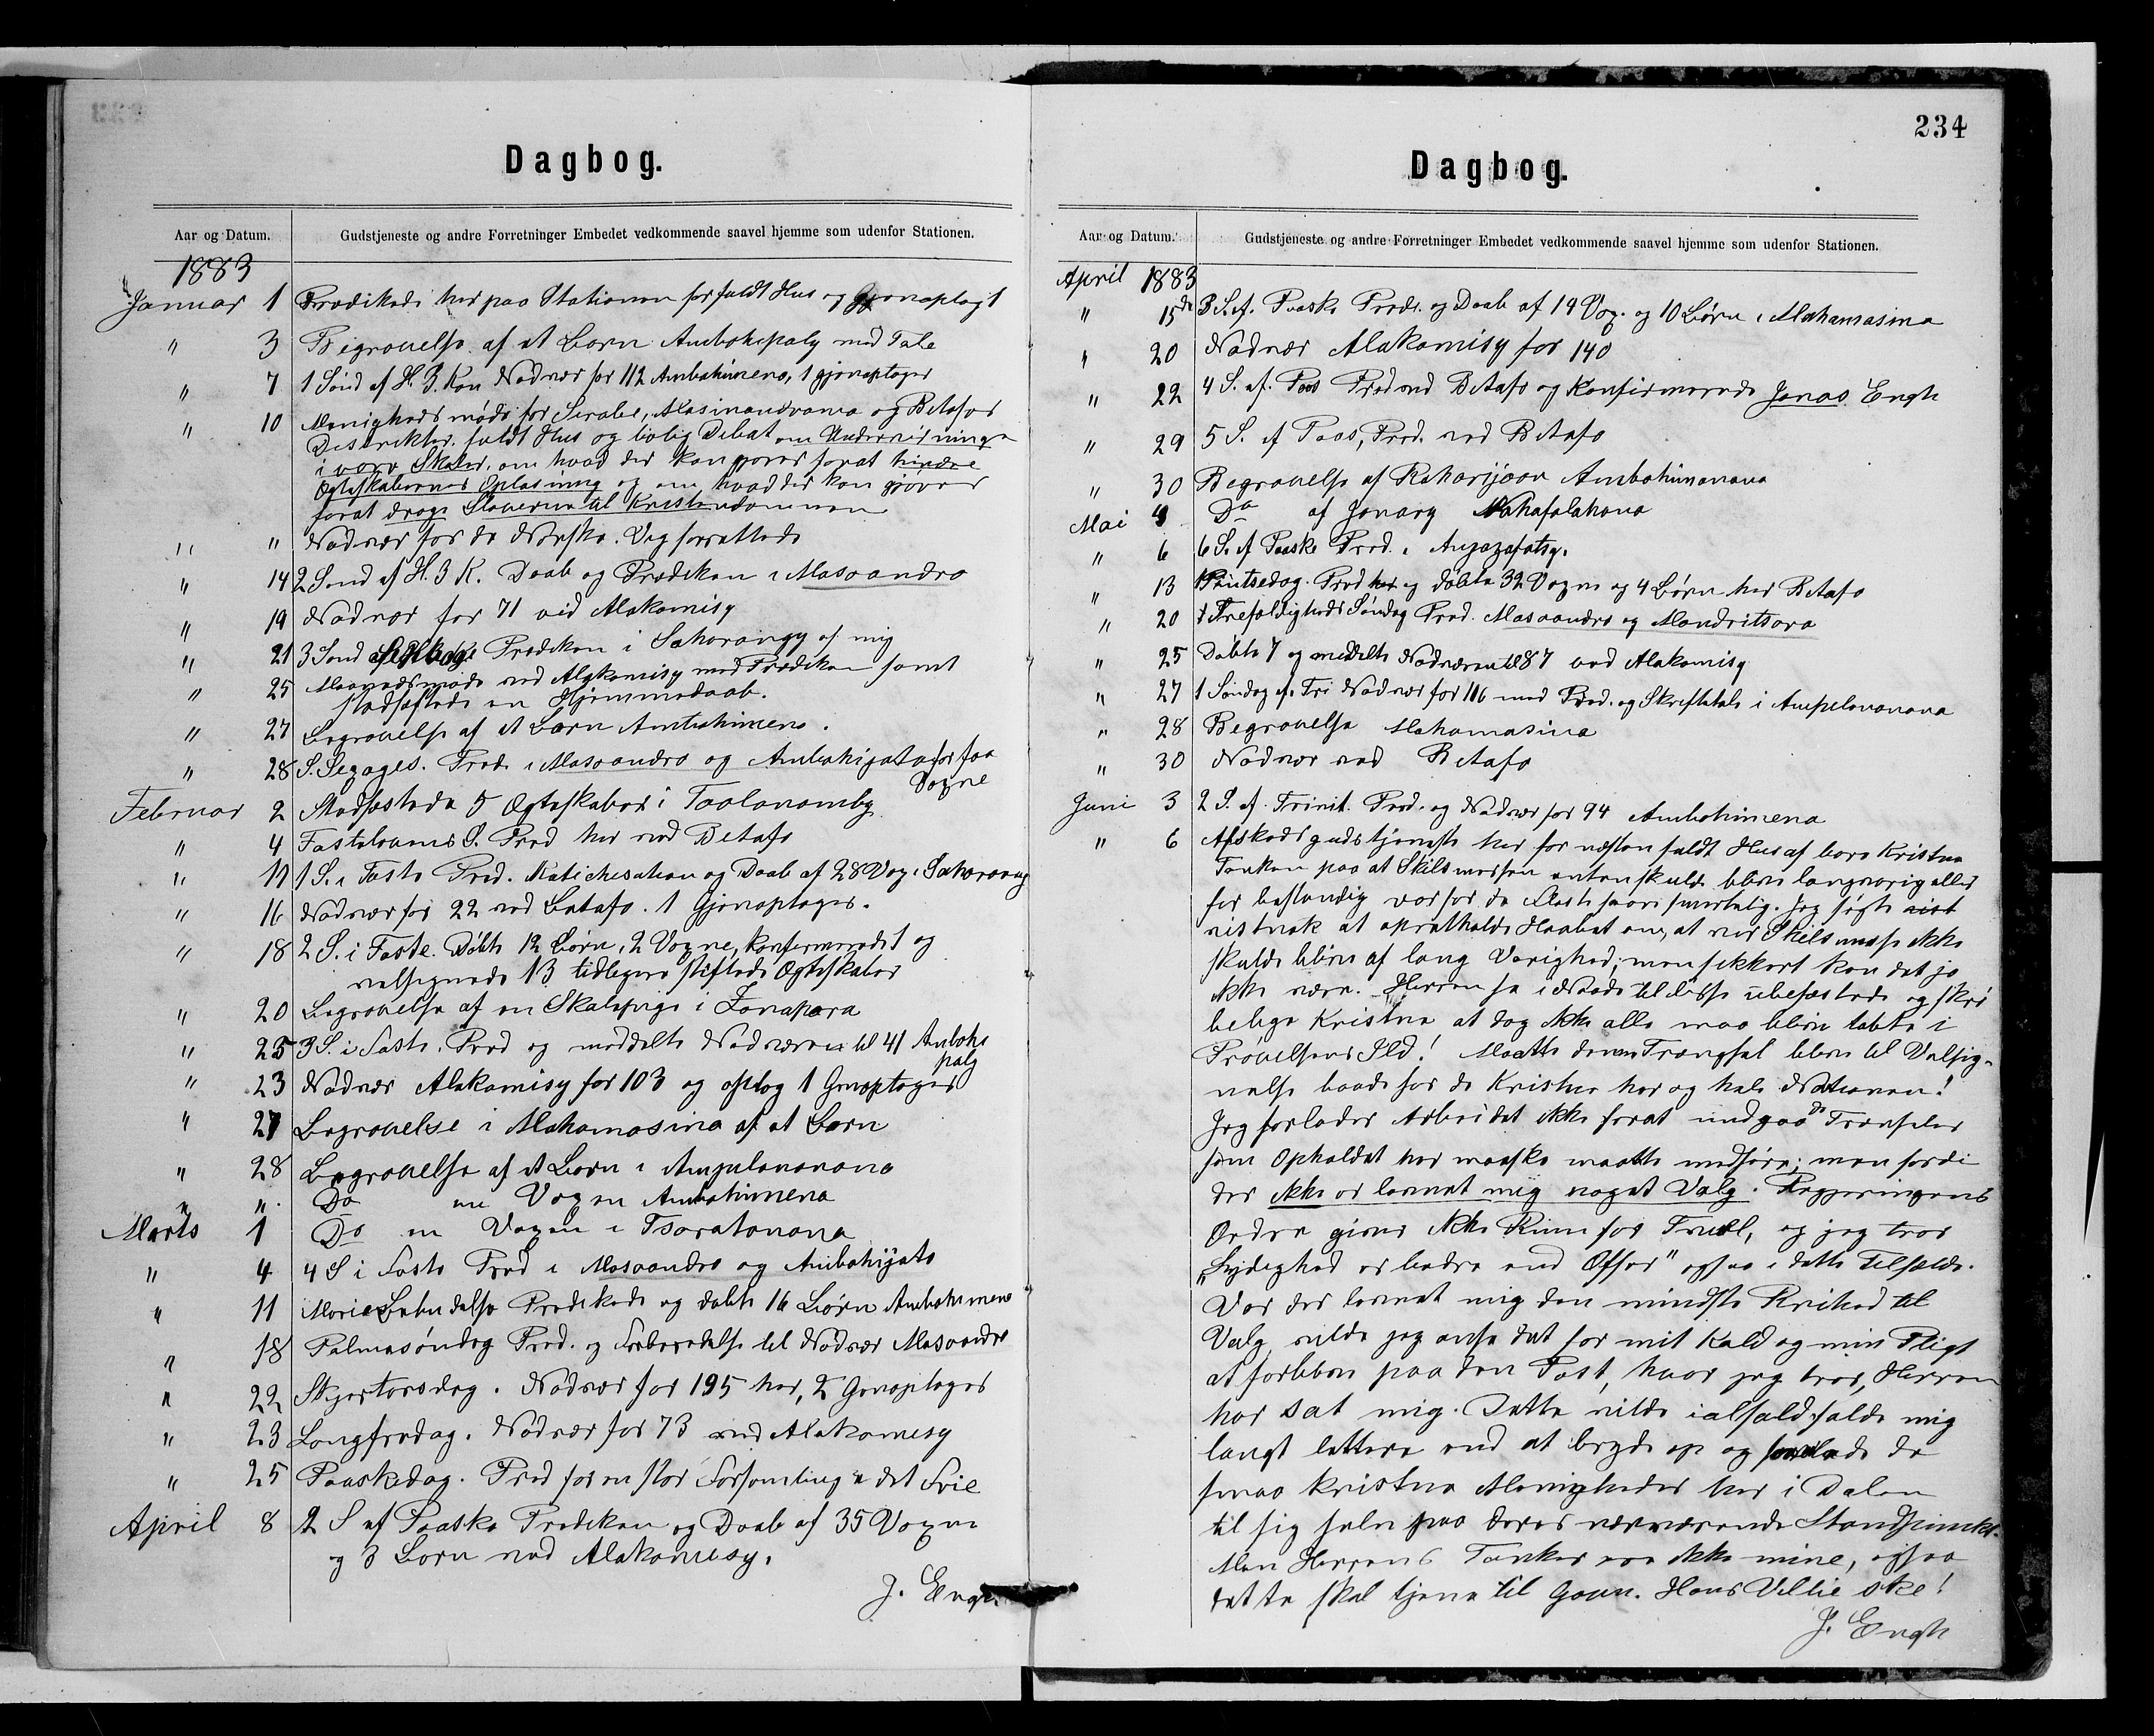 Dagbog.
Aar og Datum. Gudstjeneste og andre Forretninger Embedet vedkommende saavel hjemme som udenfor Stationen.
1883
Januar 1 Prædikede her paa Stationen for fuldt Hus og 1
" 3 Begravelse af et Barn Ambohipaly med Tale
" 7 1 Sønd af H. 3. Kon Nadver for 112 Ambohimena, 1 gjenoptoges
" 10 Menighedsmøde for Sirabe, Masinandraina og Betafos
Distrikter. fuldt Hus og livlig Debat om Undervisningen
i vore Skoler, om hvad der kan gjøres forat hindre
Ægteskabernes Opløsning og om hvad der kan gjøres
forat drage Slaverne til Kristendommen
" " Nadver for de Norske. Jeg forrettede
" 14 2 Sønd af H. 3 K. Daab og Prædiken i Masoandro
" 19 Nadver for 71 ved Alakamisy
" 21 3 Sønd Prædiken i Saharangy af mig
" 25 Maanedsmøde ved Alakamisy med Prædiken samt
stadfæstede en Hjemmedaab.
" 27 Begravelse af et Barn Ambohimena.
" 28 S. Segages. Præd. i Masoandro og Ambohijato for faa
Voxne
Februar 2 Stadfæstede 5 Ægteskaber i Taolanomby
" 4 Fastelavns S. Præd her ved Betafo
" 11 1 S. i Faste Præd. Katichesation og Daab af 28 Vox. i Saharoang
" 16 Nadver for 22 ved Betafo. 1 Gjenoptoges.
" 18 2 S. i Faste. Døbte 12 Børn, 2 Voxne, konfirmerede 1 og
velsignede 13 tidligere stiftede Ægteskaber
" 20 Begravelse af en Skolepige i Zanapara
" 25 3 S. i Faste. Præd og meddelte Nadveren til 41 Ambohi
paly
" 23 Nadver Alakamisy for 103 og optog 1 Genoptoges
" 27 Begravelse i Mahamasina af et Barn
" 28 Begravelse af et Barn i Ampelanonana
" " Do en Voxen Ambohimena
Marts 1 Do en Voxen i Tsaratanana
" 4 4 S i Faste Præd i Masoandro og Ambohijato
" 11 Mariæ Bebudelse Prædikede og døbte 16 Børn Ambohimena
" 18 Palmesøndag Præd. og Forberedelse til Nadver Masoandro
" 22 Skjertorsdag. Nadver for 195 her, 2 Genoptoges
" 23 Langfredag. Nadver for 73 ved Alakamisy
" 25 Paaskedag. Præd for en stor Forsamling i det Frie
April 8 2 S af Paaske Prædiken og Daab af 35 Voxne
og 3 Børn ved Alakamisy.
J. Engh.
234
Dagbog.
Aar og Datum. Gudstjeneste og andre Forretninger Embedet vedkommende saavel hjemme som udenfor Stationen.
April 1883
" 15de 3 S. ef. Paaske Præd. og Daab af 19 Vox. og 10 Børn i Mahamasina
" 20 Nadver Alakamisy for 140
" 22 4 S. ef. Paas Præd ved Betafo og Konfirmerede Jonas Engh
" 29 5 S. ef Paas, Præd. ved Betafo
" 30 Begravelse af Raharijaon Ambohimanana
Mai 4 Do af Janary Mahafalahana
" 6 6 S. ef Paaske Præd. i Anjazafotsy.
" 13 Pintsedag. Præd her og døbte 32 Voxne og 4 Børn her Betafo
" 20 Trefoldigheds Søndag Præd. Masoandro og Mandritsara
" 25 Døbte 7 og meddelte Nadveren til 87 ved Alakamisy
" 27 1 Søndag ef. Tri Nadver for 116 med Præd. og Skriftetale i Ampelanonana
" 28 Begravelse Mahamasina
" 30 Nadver ved Betafo
Juni 3 2 S. ef. Trinit. Præd. og Nadver for 94 Ambohimena
" 6 Afskedsgudstjeneste her for næsten fuldt Hus af bare Kristne
Tanken paa at Skilsmissen enten skulde blive langvarig eller
for bestandig var for de fleste saare smertelig. Jeg søgte vist
vistnok at opretholde Haabet om, at vor Skilsmisse ikke
skulde blive af lang Varighed; men sikkert kan det jo
ikke være. Herren se i Naade til disse ubefæstede og skrø
belige Kristne at dog ikke alle maa blive tabte i
Prøvelsens Ild! Maatte denne Trængsel blive til Velsig-
nelse baade for de Kristne her og hele Nationen!
Jeg forlader Arbeidet ikke forat undgaa de Trængsler
som Opholdet her maaske maatte medføre; men fordi
der ikke er levnet mig noget Valg. Regjeringens
Ordre giver ikke Rum for Tvivl, og jeg tror
"Lydighed er bedre end Offer" ogsaa i dette Tilfælde.
Var der levnet mig den mindste Frihed til
Valg, vilde jeg anse det for mit Kald og min Pligt
at forblive paa den Post, hvor jeg tror, Herren
har sat mig. Dette vilde ialfald falde mig
langt lettere end at bryde op og forlade de
smaa kristne Menigheder her i Dalen
til sig selv paa deres nærværende Standpunkt.
Men Herrens Tanker ere ikke mine, ogsaa
dette skal tjene til Gavn. Hans Villie ske!
J. Engh